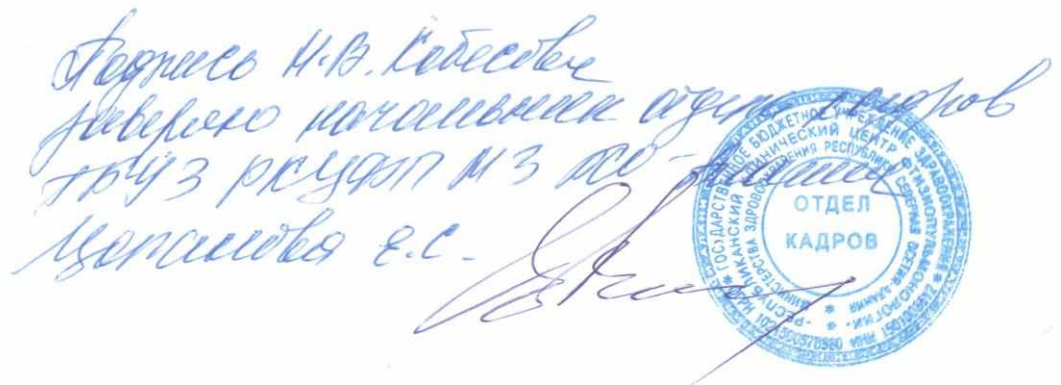 Подпись Н.В. Кобесовой
заверяю начальник отдела кадров
ГБУЗ РКЦФП МЗ РСО-Алания
Цораинова Е.С.
ГОСУДАРСТВЕННОЕ БЮДЖЕТНОЕ УЧРЕЖДЕНИЕ ЗДРАВООХРАНЕНИЯ
РЕСПУБЛИКАНСКИЙ КЛИНИЧЕСКИЙ ЦЕНТР ФТИЗИОПУЛЬМОНОЛОГИИ
МИНИСТЕРСТВА ЗДРАВООХРАНЕНИЯ РЕСПУБЛИКИ СЕВЕРНАЯ ОСЕТИЯ-АЛАНИЯ
ОТДЕЛ
КАДРОВ